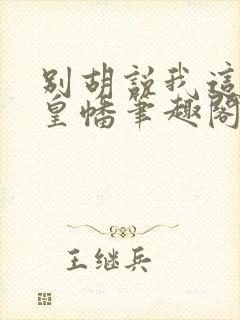 别胡説我這
皇幡筆趣閣
王继兵